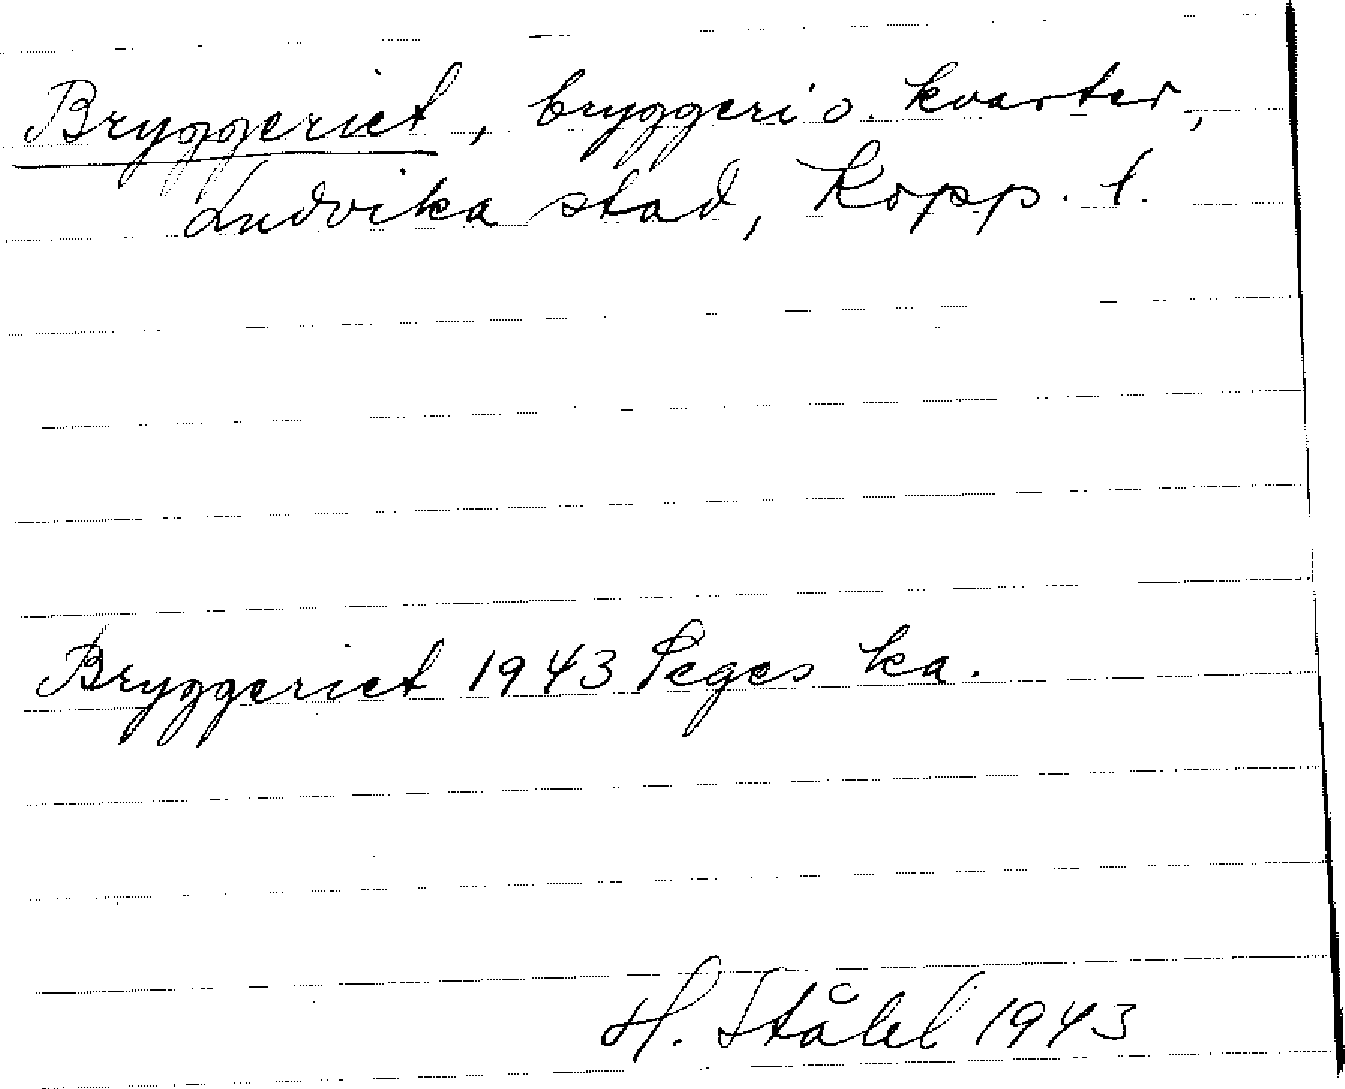 Bryggeriet, bryggeri o. kvarter,
Ludvika stad, Kopp. l.
Bryggeriet 1943 Peges ka.
H. Ståhl 1943